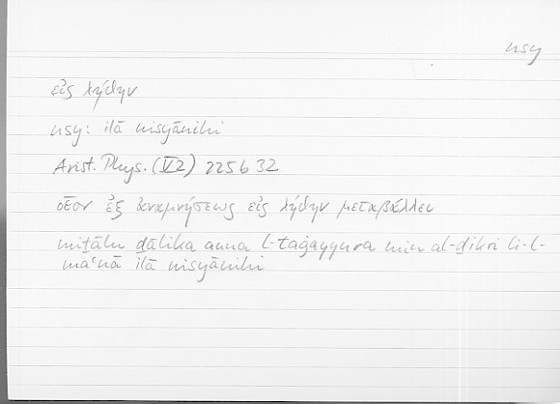 nsy
εἰς λήθην
nsy: ilā nisyānihi
Arist. Phys. (V2) 225b32
οἷον ἐξ ἀναμνήσεως εἰς λήθην μεταβάλλει
miṯālu ḏālika anna l-taġayyura min al-ḏikri li-l-
maʿnā ilā nisyānihi